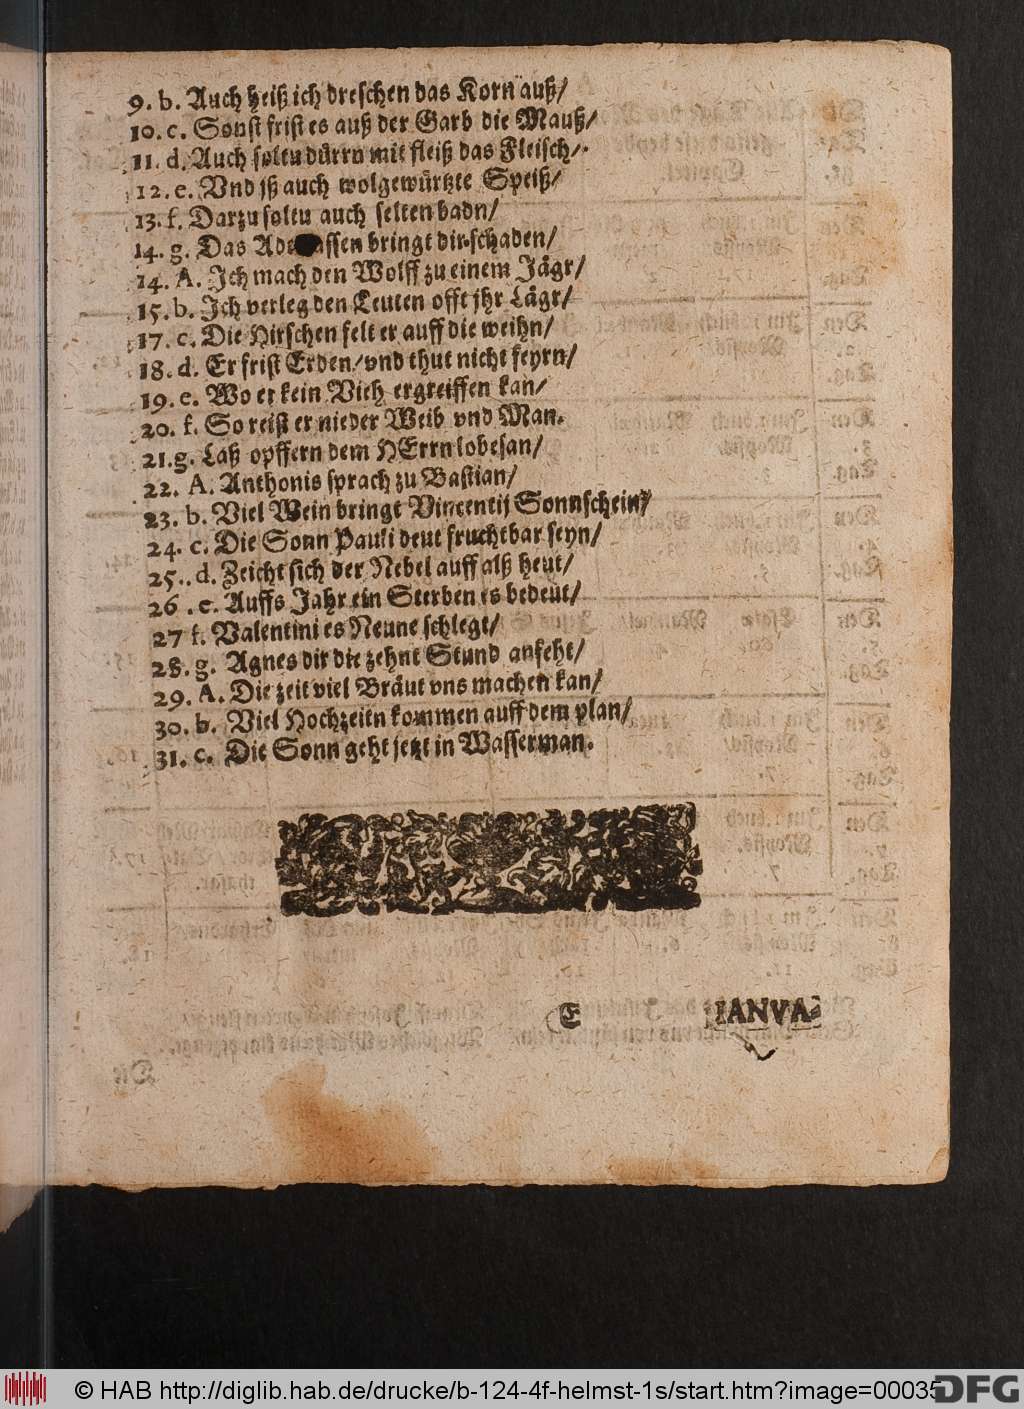 9. b. Auch heiß ich dreschen das Korn auß/
10. c. Sonst frist es auß der Garb die Mauß/
11. d. Auch soltu dürrn mit fleiß das Fleisch/
12. e. Vnd jß auch wolgewürtzte Speiß/
13. f. Darzu soltu auch selten badn/
14. g. Das bringt dir schaden/
14. A. Ich mach den Wolff zu einem Jägr/
15. b. Ich verleg den Leuten offt jhr Lägr/
17. c. Die Hirschen felt er auff die weihn/
18. d. Er frist Erden/ vnd thut nicht feyrn/
19. e. Wo er kein Vieh ergreiffen kan/
20. f. So reist er nieder Weib vnd Man.
21. g. Laß opffern dem HErrn lobesan/
22. A. Anthonis sprach zu Bastian/
23. b. Viel Wein bringt Vincentij Sonnschein/
24. c. Die Sonn Pauli deut fruchtbar seyn/
25. d. Zeicht sich der Nebel auff alß heut/
26. e. Auffs Jahr ein Sterben es bedeut/
27 f. Valentini es Neune schlegt/
28. g. Agnes dir die zehnt Stund anfeht/
29. A. Die zeit viel Bräut vns machen kan/
30. b. Viel Hochzeitn kommen auff dem plan/
31. c. Die Sonn geht jetzt in Wasserman.
E IANVA-
© HAB http://diglib.hab.de/drucke/b-124-4f-helmst-1s/start.htm?image=00035
DFG